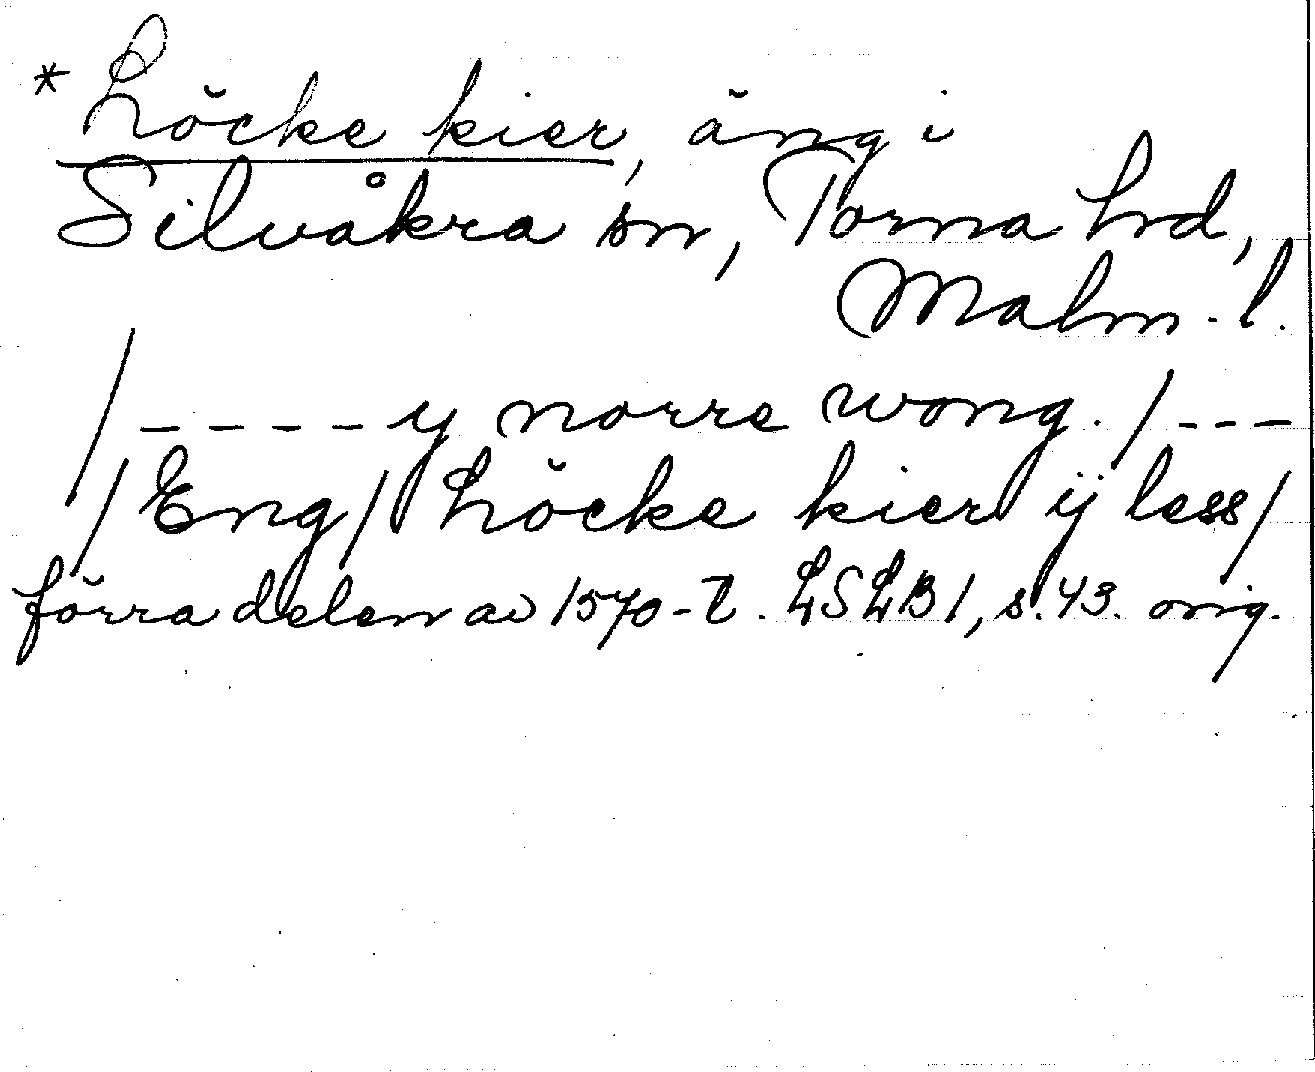 * Löcke kier, äng i
Silvåkra sn, Torna hd,
Malm. l.
/ - - - - y norre wong. / - - -
/ Eng / Löcke kier ij less /
förra delen av 1570-t. LSLB 1, s. 43. orig.